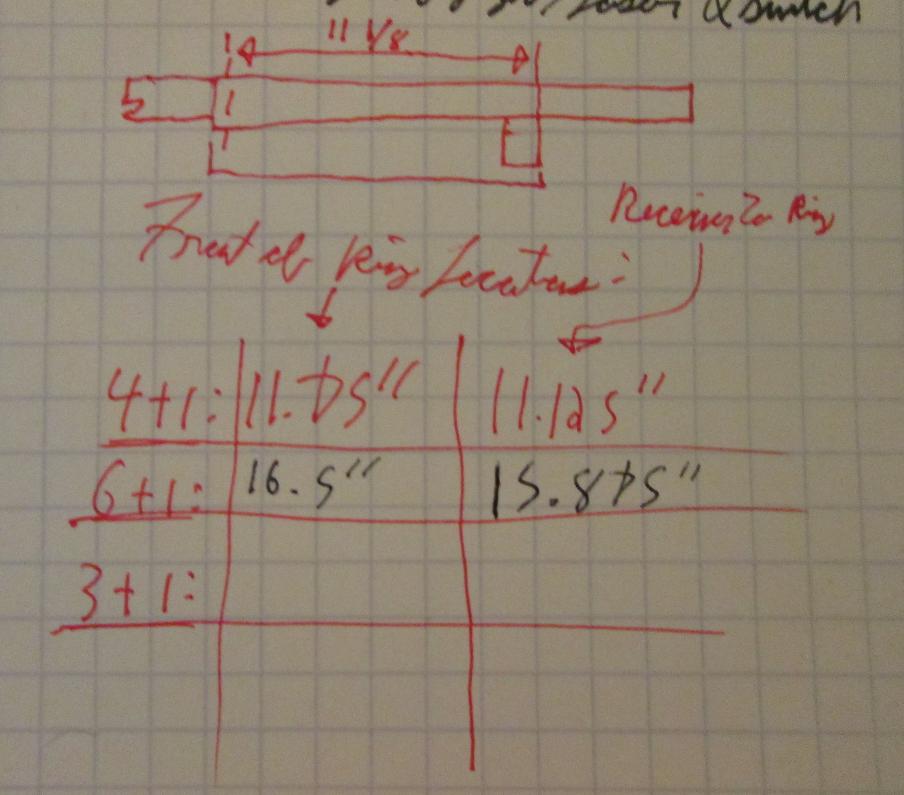 Laser & Switch
11 1/8
Receiver to Ring
Front of Ring Locations:
4+1: 11.75" 11.125"
6+1: 16.5" 15.875"
3+1: